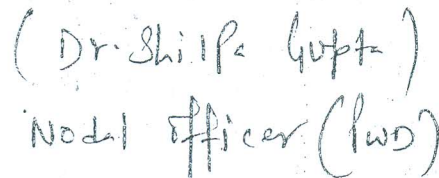 (Dr. Shilpa Gupta)
Nodal Officer (PWD)